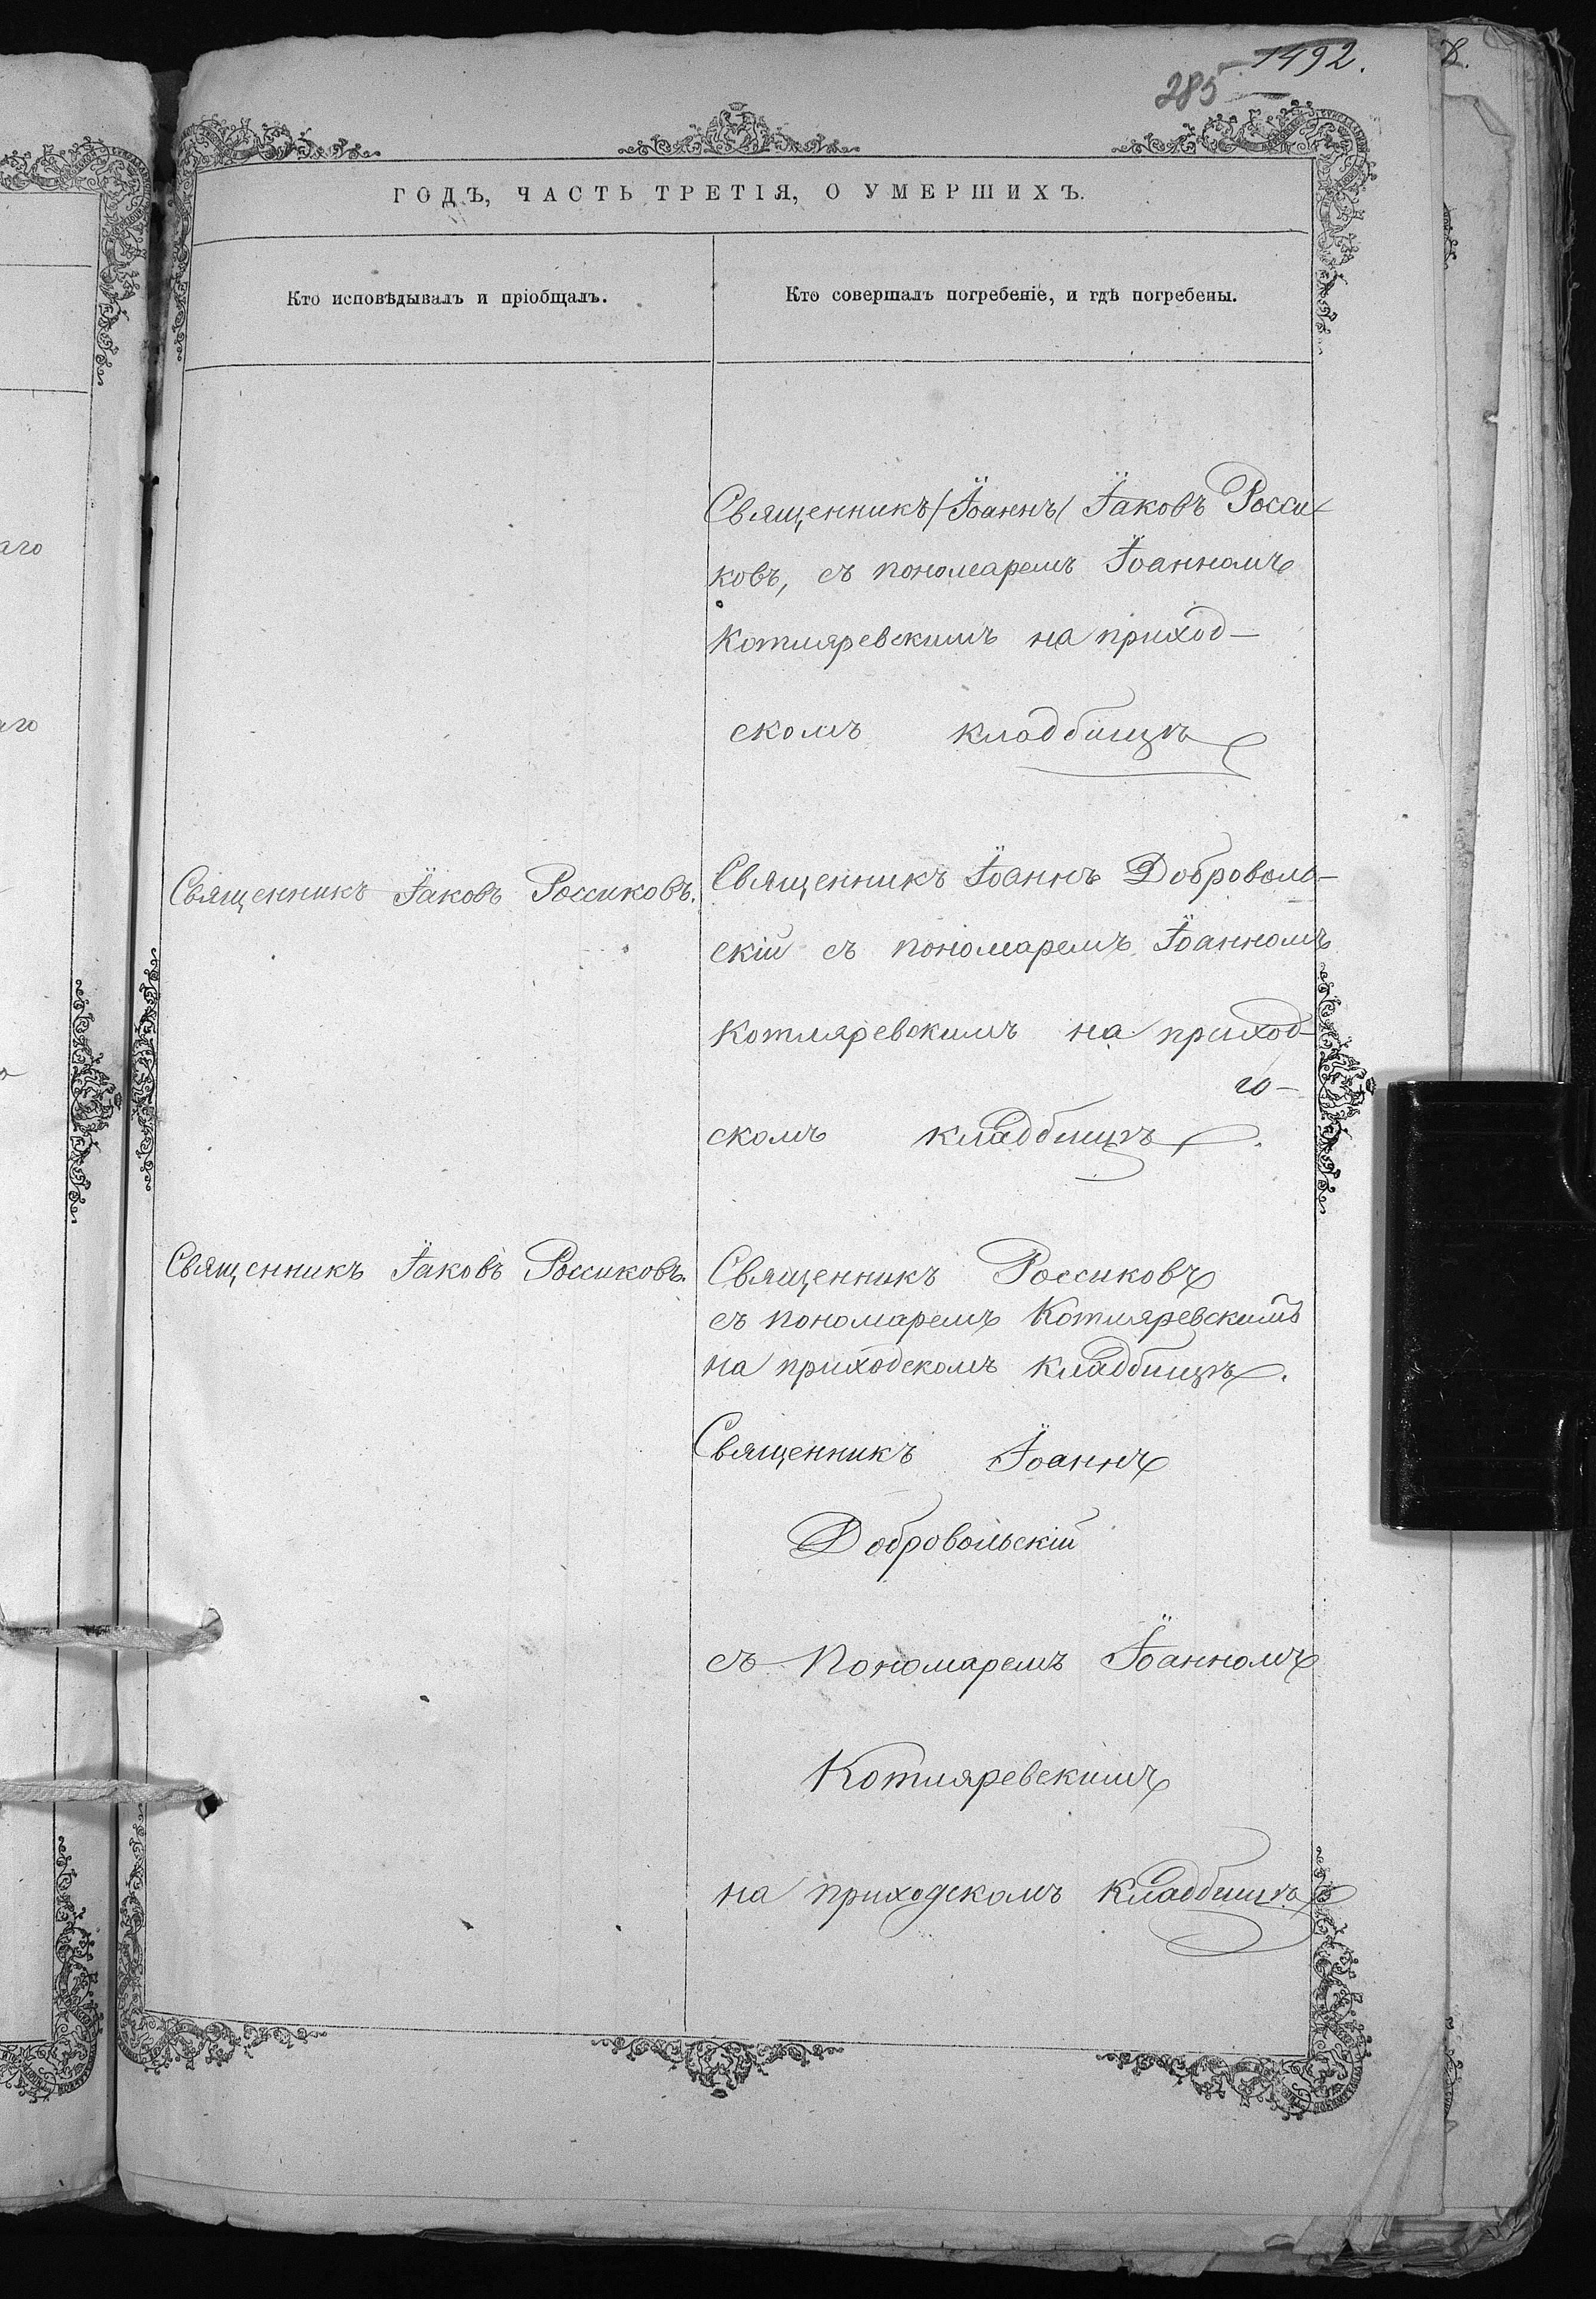 1492.
285
ГОДЪ, ЧАСТЬ ТРЕТІЯ, О УМЕРШИХЪ.
Кто исповѣдывалъ и пріобщалъ.
Кто совершалъ погребеніе, и гдѣ погребены.
Священникъ (Іоаннъ) Іаковъ Росси
ковъ, съ пономаремъ Іоанномъ
Котляревскимъ на приход-
скомъ кладбищѣ
Священникъ Іаковъ Россиковъ.
Священникъ Іоаннъ Доброволь-
скій съ пономаремъ Іоанномъ
Котляревскимъ на приход-
скомъ кладбищѣ.
Священникъ Іаковъ Россиковъ.
Священникъ Россиковъ
съ пономаремъ Котляревскимъ
на приходскомъ кладбищѣ.
Священникъ Іоаннъ
Добровольскій
съ Пономаремъ Іоанномъ
Котляревскимъ
на приходскомъ кладбищѣ
аго
аго